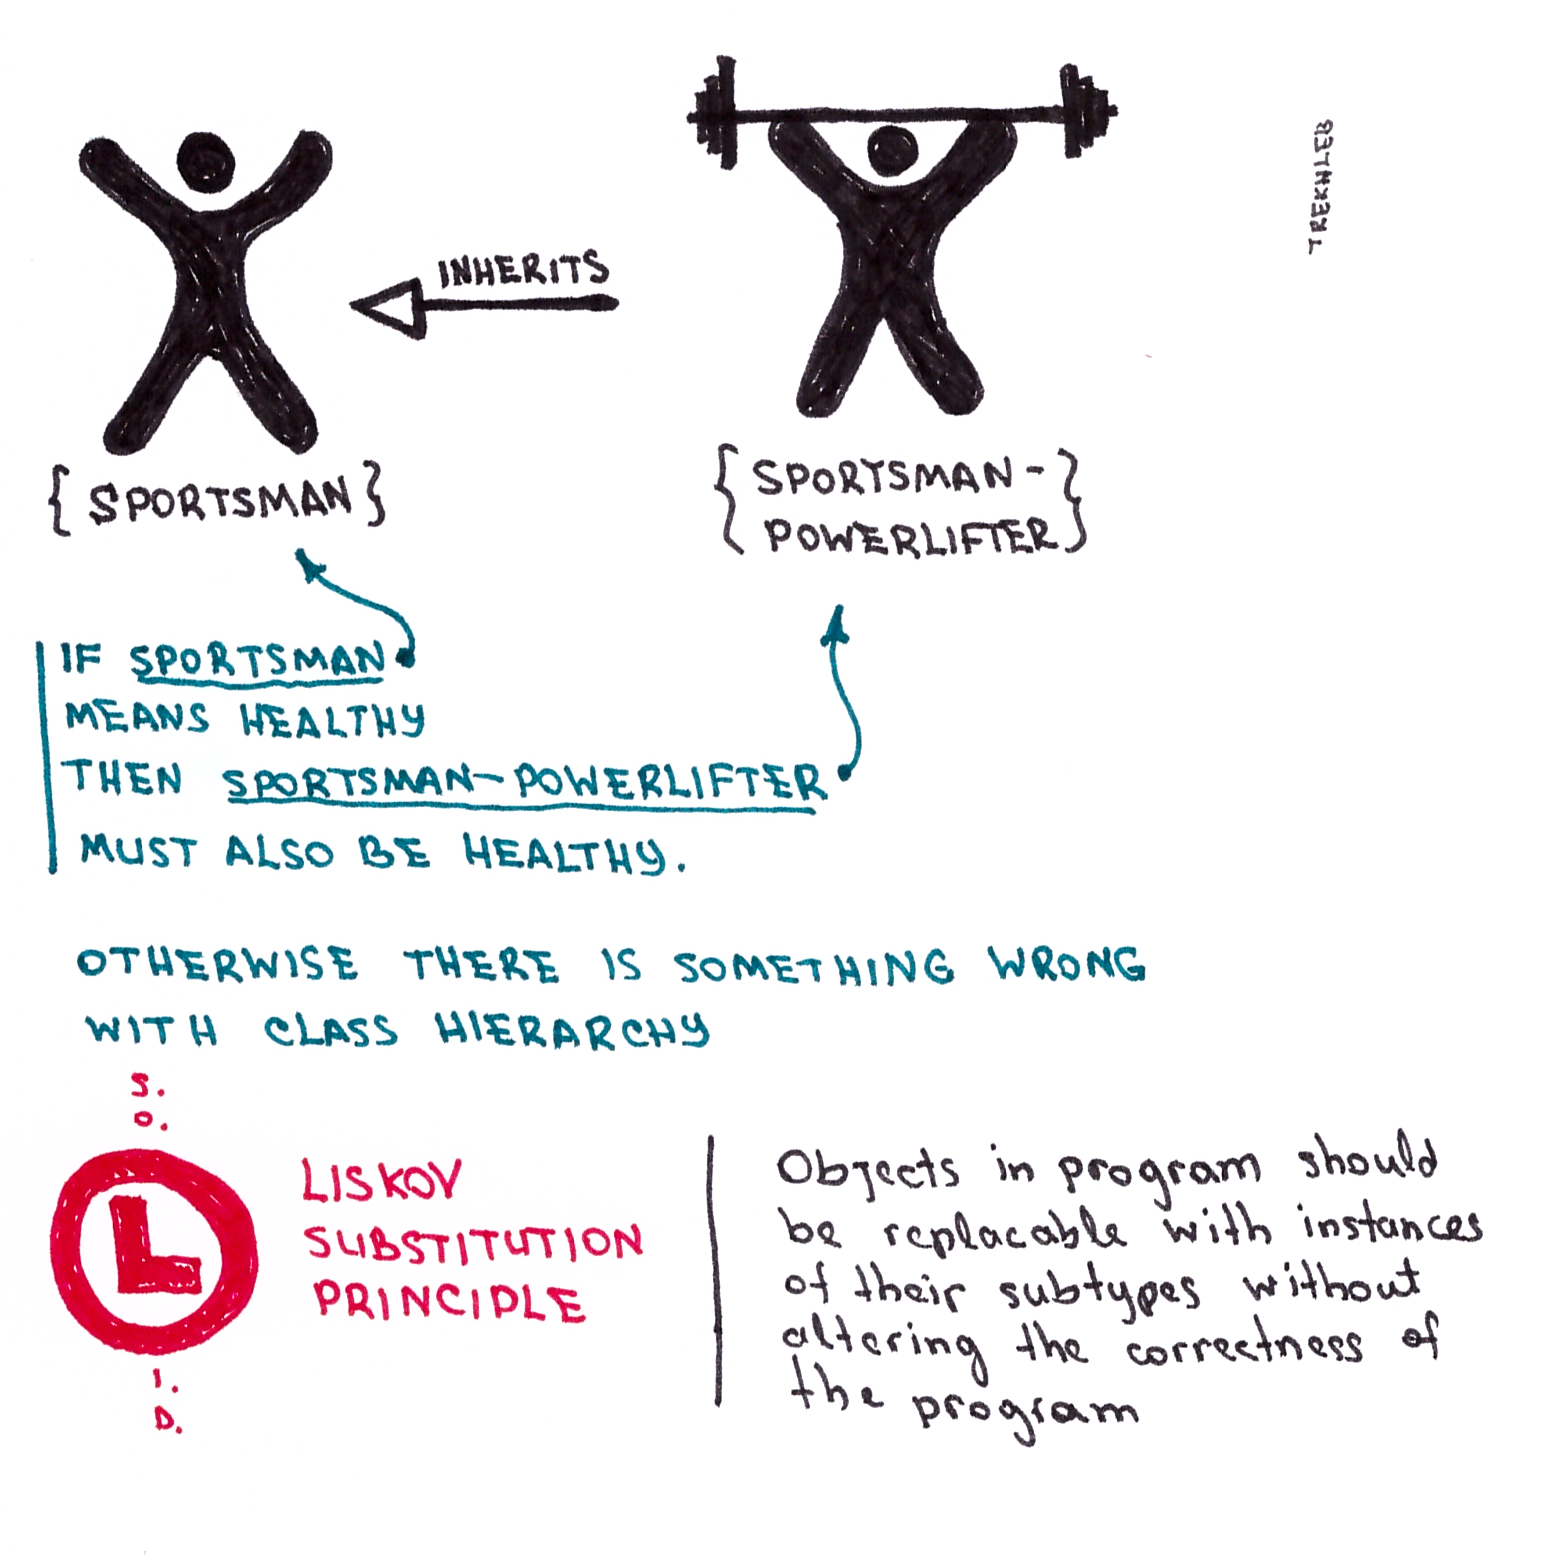 TREKHLEB
INHERITS
{ SPORTSMAN }
{ SPORTSMAN-
POWERLIFTER }
IF SPORTSMAN
MEANS HEALTHY
THEN SPORTSMAN-POWERLIFTER
MUST ALSO BE HEALTHY.
OTHERWISE THERE IS SOMETHING WRONG
WITH CLASS HIERARCHY
S.
O.
L
I.
D.
LISKOV
SUBSTITUTION
PRINCIPLE
Objects in program should
be replacable with instances
of their subtypes without
altering the correctness of
the program